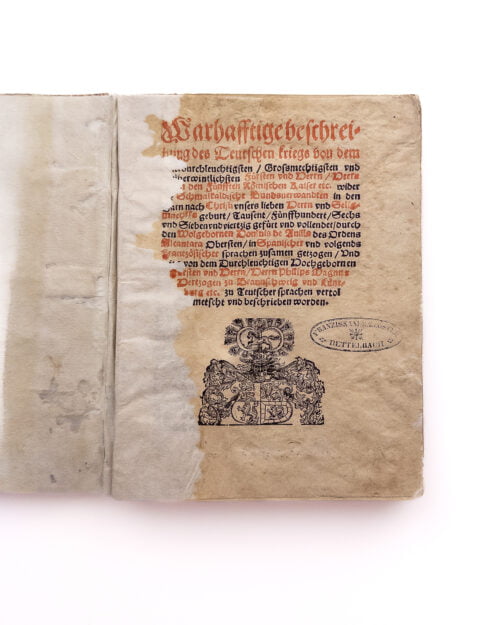 Warhafftige beschrei-
bung des Teutschen kriegs von dem
Durchleuchtigsten / Großmechtigsten vnd
Fürsten vnd Herrn / Herrn
den Fünfften Römischen Kaiser etc. wider
Schmalkaldische Bundsuerwandten in den
nach Christi vnsers lieben Herrn vnd
geburt / Tausent / Fünffhundert / Sechs
vnd Sieben vnd viertzig gefürt vnd vollendet / durch
den Wolgebornen Don de Auila des Ordens
Alcantara Obersten / in Spanischer vnd volgends
Frantzösischer sprachen zusamen getzogen / Vnd
von dem Durchleuchtigen Hochgebornen
vnd Herrn / Herrn Philips Magnus
Hertzogen zu Braunschweig vnd Lüne-
burg etc. zu Teutscher sprachen vertol
metscht vnd beschrieben worden.
FRANZISKANERKLOSTER
DETTELBACH